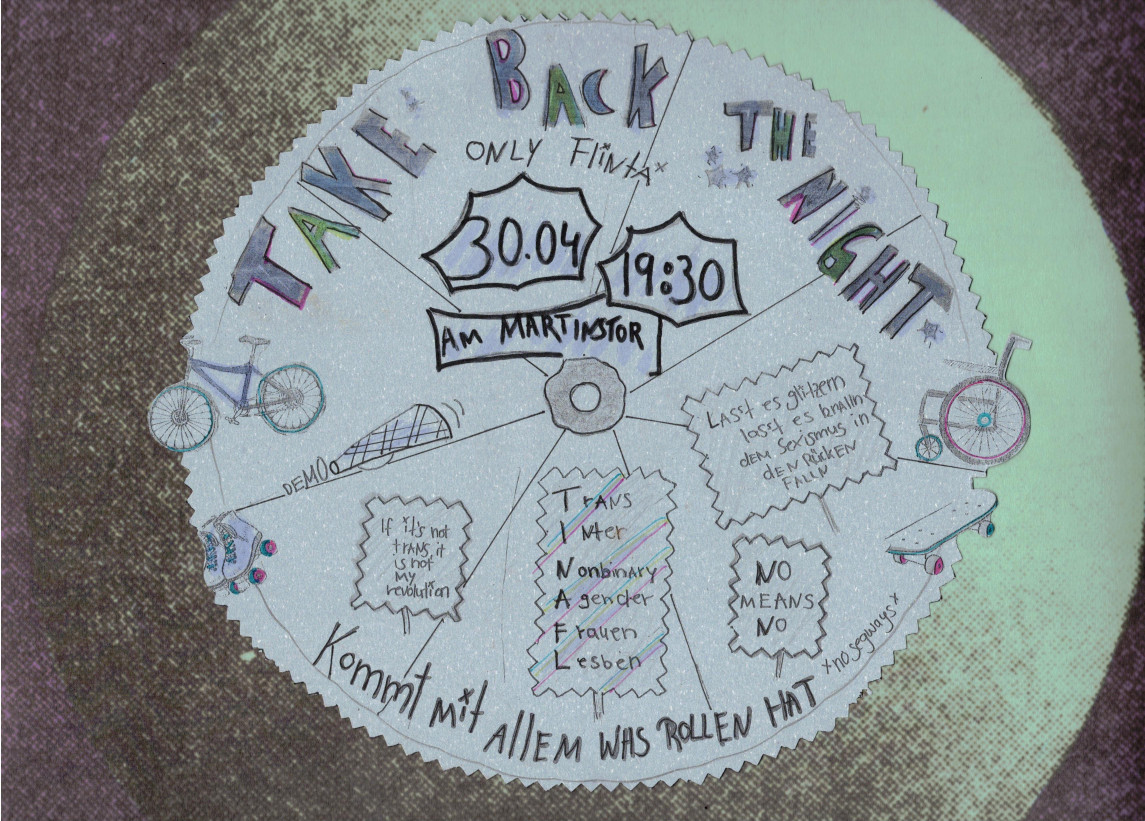 TAKE BACK THE NIGHT
ONLY FlINTA*
30.04
19:30
AM MARTINSTOR
DEMO
Lasst es glitzern
lasst es knalln
dem Sexismus in
den Rücken
FALLN
If it's not
trans, it
is not
my
revolution
Trans
Inter
Nonbinary
Agender
Frauen
Lesben
NO
MEANS
NO
Kommt mit AllEM WAS ROLLEN HAT
*no segways*